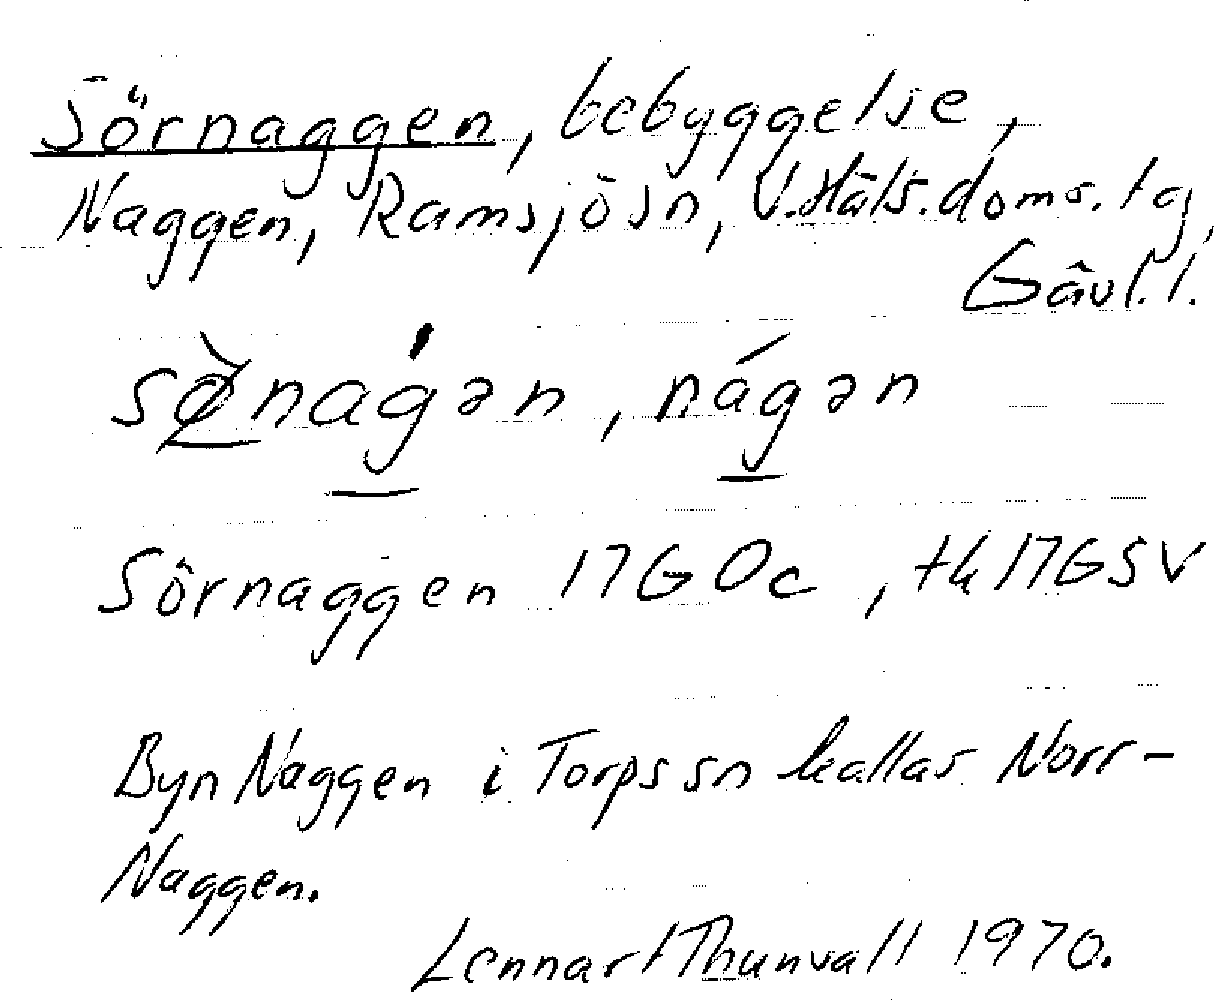 Sörnaggen, bebyggelse,
Naggen, Ramsjö sn, V. Häls. doms. tg,
Gävl. l.
sø̀nagən, nágən
Sörnaggen 17G 0c, tk 17GSV
Byn Naggen i Torps sn kallas Norr-
Naggen.
Lennart Thunvall 1970.